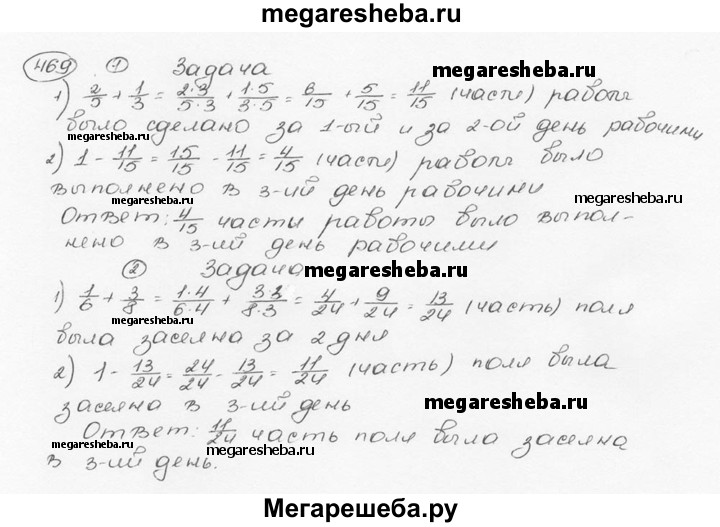 megaresheba.ru
469 ① Задача
megaresheba.ru
1) 2/5 + 1/3 = 2·3/5·3 + 1·5/3·5 = 6/15 + 5/15 = 11/15 (части) работы
было сделано за 1-ый и за 2-ой день рабочими
2) 1 - 11/15 = 15/15 - 11/15 = 4/15 (части) работы было
выполнено в 3-ий день рабочими
megaresheba.ru
Ответ: 4/15 части работы было выпол-
нено в 3-ий день рабочими
② Задача
megaresheba.ru
1) 1/6 + 3/8 = 1·4/6·4 + 3·3/8·3 = 4/24 + 9/24 = 13/24 (часть) поля
megaresheba.ru
была засеяна за 2 дня
2) 1 - 13/24 = 24/24 - 13/24 = 11/24 (часть) поля была
засеяна в 3-ий день
megaresheba.ru
Ответ: 11/24 часть поля была засеяна
megaresheba.ru
в 3-ий день.
megaresheba.ru
Мегарешеба.ру